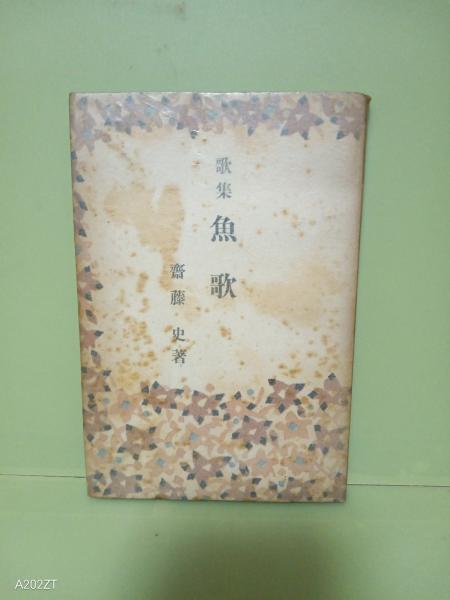 歌集
魚歌
齋藤史著
A202ZT